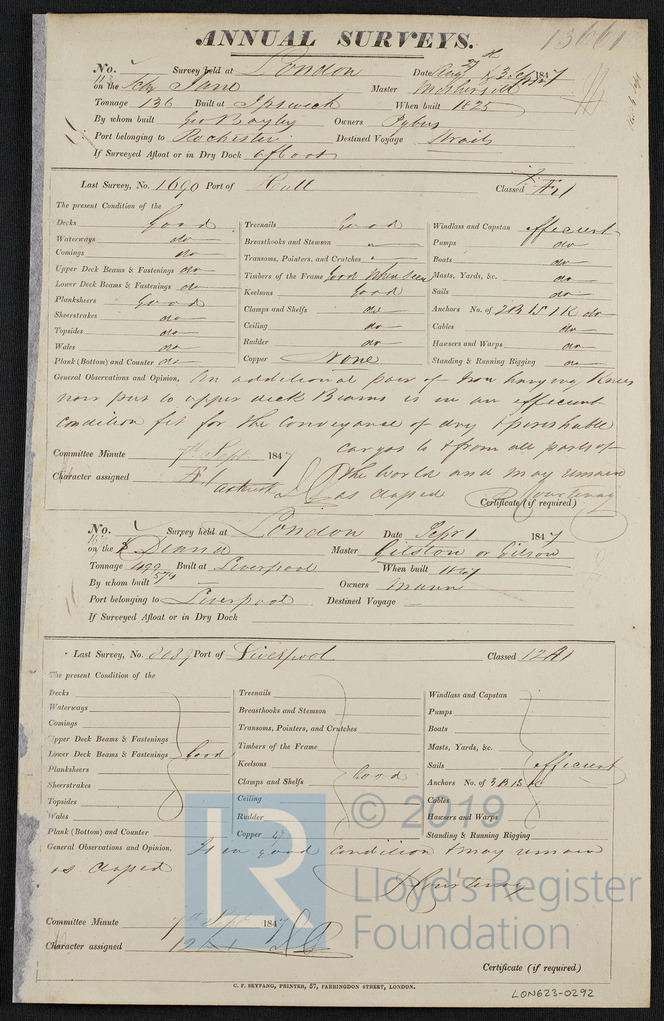 13661
ANNUAL SURVEYS.
No. Survey held at London Date Augt 27 & 3 Sepr 1847
on the Schr Jane Master
Tonnage 136 Built at Ipswich When built 1825
By whom built Geo Bayley Owners Pybus
Port belonging to Rochester Destined Voyage Straits
If Surveyed Afloat or in Dry Dock afloat
Last Survey, No. 1690 Port of Hull Classed Æ1
The present Condition of the
Decks Good Treenails Good Windlass and Capstan efficient
Waterways do Breasthooks and Stemson " Pumps do
Comings do Transoms, Pointers, and Crutches " Boats do
Upper Deck Beams & Fastenings do Timbers of the Frame Good when seen Masts, Yards, &c. do
Lower Deck Beams & Fastenings do Keelsons Good Sails do
Planksheers Good Clamps and Shelfs do Anchors No. of 2B 1S 1K do
Sheerstrakes do Ceiling do Cables do
Topsides do Rudder do Hawsers and Warps do
Wales do Copper None Standing & Running Rigging do
Plank (Bottom) and Counter do
General Observations and Opinion, An additional pair of Iron hanging Knees
now put to upper deck Beams is in an efficient
condition fit for the conveyance of dry & perishable
cargoes to & from all parts of
Committee Minute 7th Sept 1847 the World and may remain
Character assigned Æ1 as classed Courtenay
Certificate (if required)
No. Survey held at London Date Sepr 1 1847
on the Diana Master Gilston or Gilson
Tonnage 499 Built at Liverpool When built 1847
By whom built — Owners Mann
Port belonging to Liverpool Destined Voyage —
If Surveyed Afloat or in Dry Dock
Last Survey, No. 8089 Port of Liverpool Classed 12A1
The present Condition of the
Decks Treenails Windlass and Capstan
Waterways Breasthooks and Stemson Pumps
Comings Transoms, Pointers, and Crutches Boats
Upper Deck Beams & Fastenings Timbers of the Frame Masts, Yards, &c.
Lower Deck Beams & Fastenings Good Keelsons Sails efficient
Planksheers Clamps and Shelfs Good Anchors No. of 3B 1S
Sheerstrakes Ceiling Cables
Topsides Rudder Hawsers and Warps
Wales Copper Standing & Running Rigging
Plank (Bottom) and Counter
General Observations and Opinion, Is in good condition & may remain
as classed
Courtenay
Committee Minute 7th Sept 1847
Character assigned 12A1
Certificate (if required)
C. F. SEYFANG, PRINTER, 57, FARRINGDON STREET, LONDON.
LON623-0292
LR © 2019
Lloyd's Register
Foundation